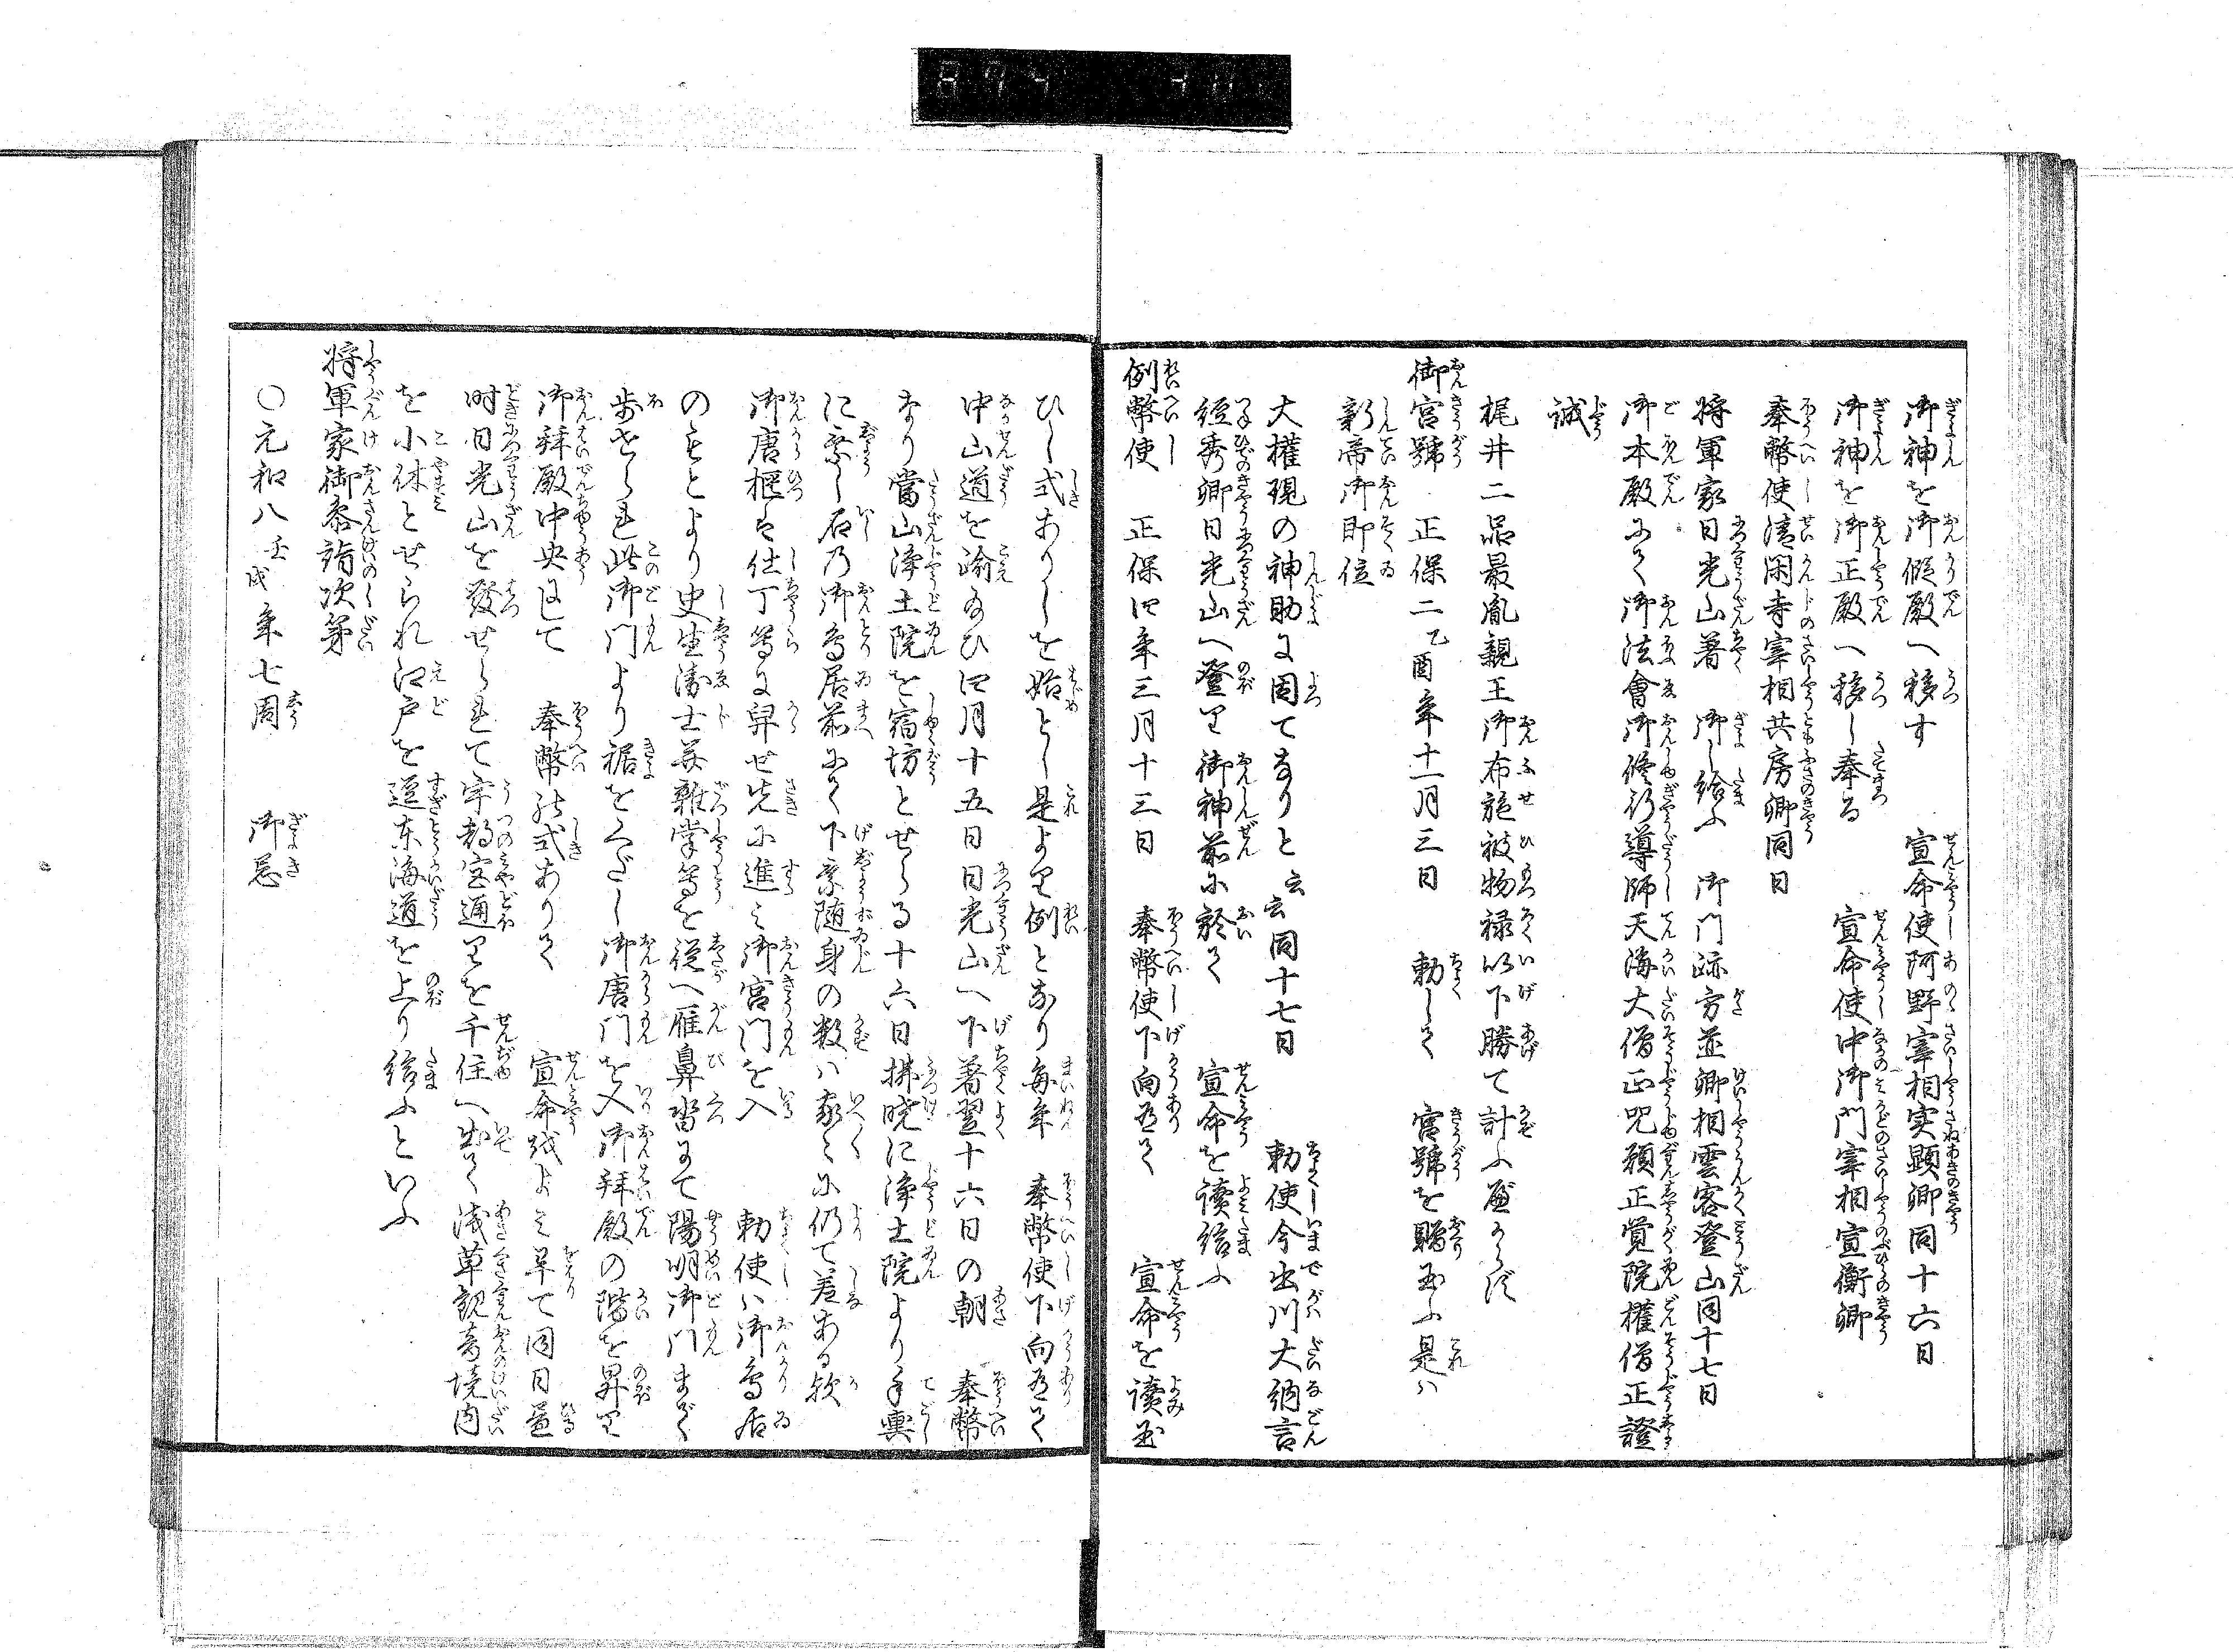 御神を御假殿へ移す　宣命使阿野宰相実顕卿同十六日
御神を御正殿へ移し奉る　宣命使中御門宰相宣衡卿
奉幣使清閑寺宰相共房卿同日
将軍家日光山著　御し給ふ　御門跡方並卿相雲客登山同十七日
御本殿にて御法會御修行導師天海大僧正呪願正覚院権僧正證
誠
梶井二品最胤親王御布施被物禄以下勝て計ふ
御宮號　正保二乙酉年十一月三日　勅して　宮號を贈玉ふ是ハ
新帝御即位
大權現の神助に因てなりと云云同十七日　勅使今出川大納言
経秀卿日光山へ登り御神前に於て　宣命を讀給ふ
例幣使　正保四年三月十三日　奉幣使下向有て　宣命を讀玉
ひし式ありしを始とし是より例となり毎年　奉幣使下向有て
中山道を踰給ひ四月十五日日光山へ下著翌十六日の朝　奉幣
なり當山浄土院を宿坊とせらる十六日拂暁に浄土院より手輿
に乗し石乃御鳥居前にて下乗随身の数ハ家々に仍て差ある歟
御唐櫃を仕丁等に舁せ先に進ミ御宮門を入　勅使ハ御鳥居
のもとより史生衛士並雜掌等を從へ雁鼻沓にて陽明御門まで
歩せられ此御門より裾をくだし御唐門を入御拜殿の階を昇り
御拜殿中央にして　奉幣の式ありて　宣命を よミ畢て同日昼
時日光山を發せられて宇都宮通りを千住へ出て浅草観音境内
を小休とせられ江戸を過東海道を上り給ふといふ
将軍家御参詣次第
〇元和八壬戌年七周　御忌